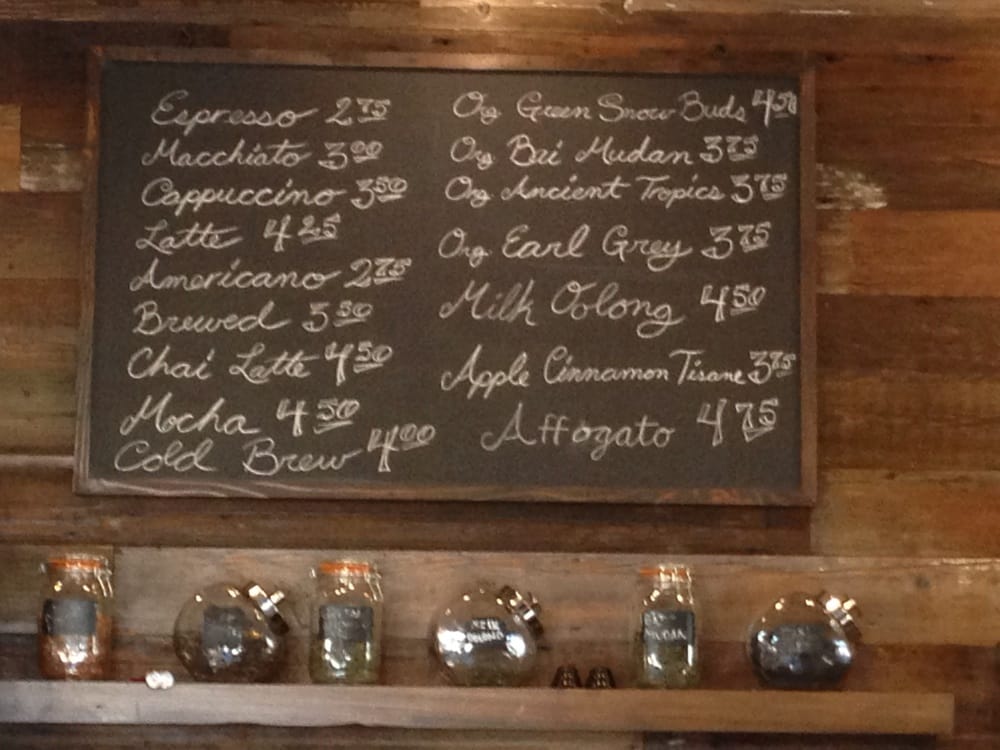 Espresso 2.75
Macchiato 3.00
Cappuccino 3.50
Latte 4.25
Americano 2.75
Brewed 3.50
Chai Latte 4.50
Mocha 4.50
Cold Brew 4.00
Org Green Snow Buds 4.50
Org Bai Mudan 3.75
Org Ancient Tropics 3.75
Org Earl Grey 3.75
Milk Oolong 4.50
Apple Cinnamon Tisane 3.75
Affogato 4.75
MILK
OOLONG
MUDAN